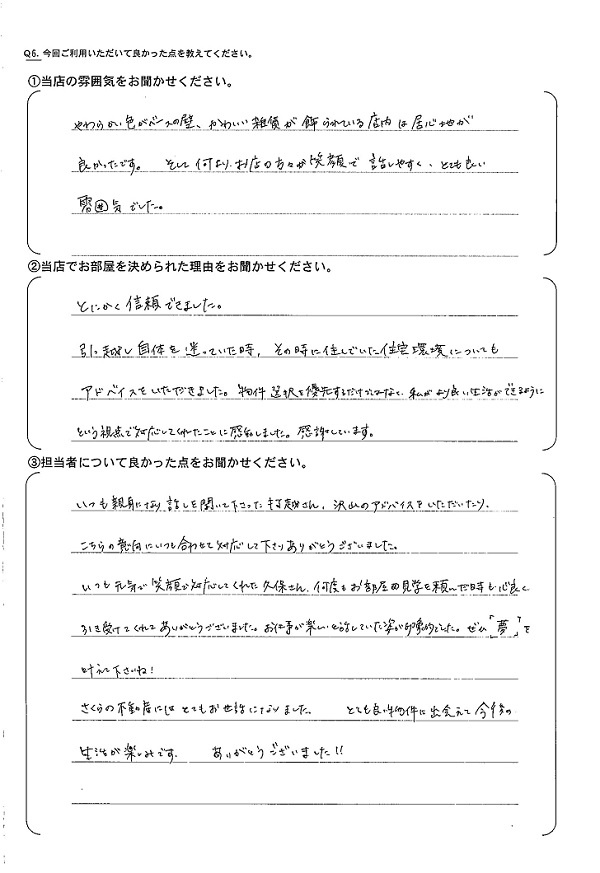 Q6. 今回ご利用いただいて良かった点を教えてください。
①当店の雰囲気をお聞かせください。
やわらかい色がベースの壁、かわいい雑貨が飾られている店内は居心地が
良かったです。 そして何より、お店の方々が笑顔で話しやすく、とても良い
雰囲気でした。
②当店でお部屋を決められた理由をお聞かせください。
とにかく信頼できました。
引っ越し自体を迷っていた時、その時に住んでいた住宅環境についても
アドバイスをいただきました。物件選択を優先するだけではなく、私がより良い生活ができるように
という視点で対応してくれたことに感動しました。感謝しています。
③担当者について良かった点をお聞かせください。
いつも親身になり話しを聞いて下さった村越さん、沢山のアドバイスをいただいたり、
こちらの意向にいつも合わせて対応して下さりありがとうございました。
いつも元気で笑顔で対応してくれた久保さん、何度もお部屋の見学を頼んだ時も心良く
引き受けてくれてありがとうございました。お仕事が楽しいと話していた姿が印象的でした。ぜひ「夢」を
叶えて下さいね!
さくらの不動産にはとてもお世話になりました。 とても良い物件に出会えて今後の
生活が楽しみです。 ありがとうございました!!